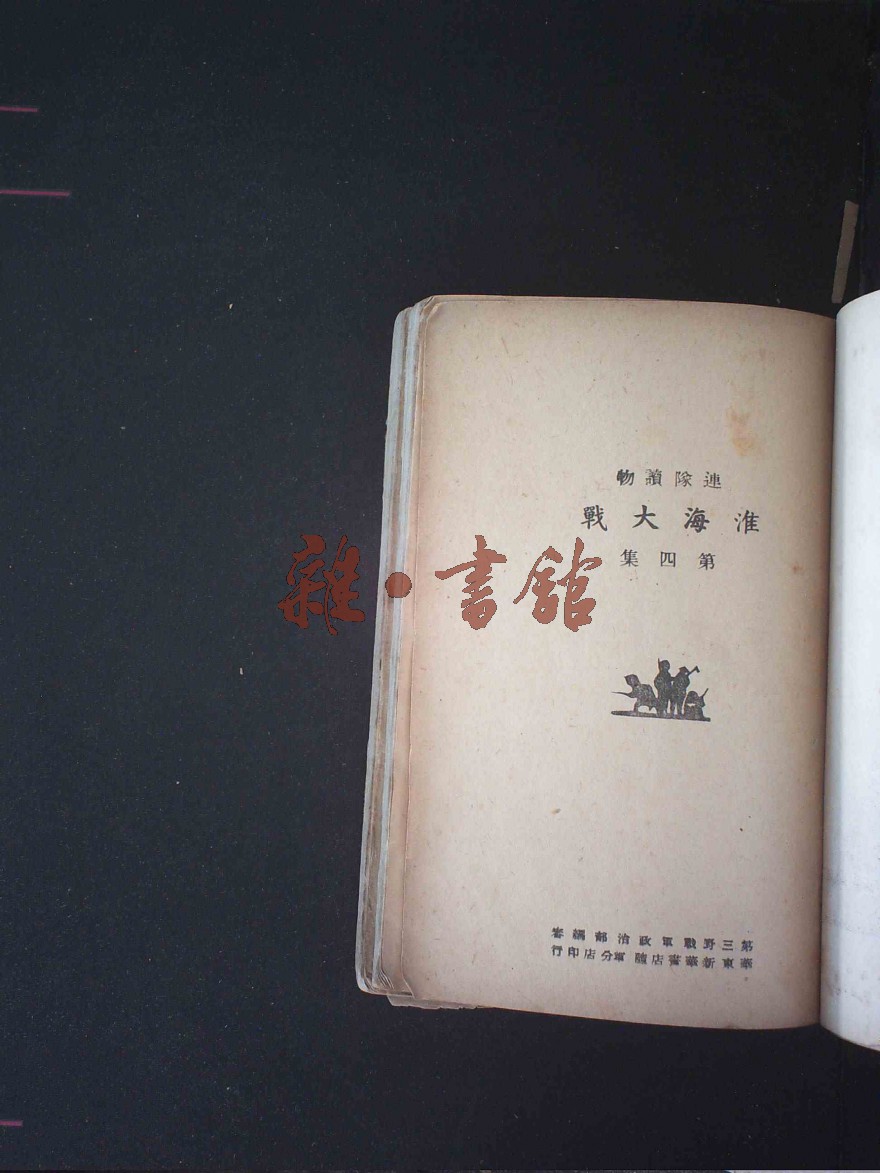 連隊讀物
淮海大戰
第四集
雜·書館
第三野戰軍政治部編審
華東新華書店隨軍分店印行